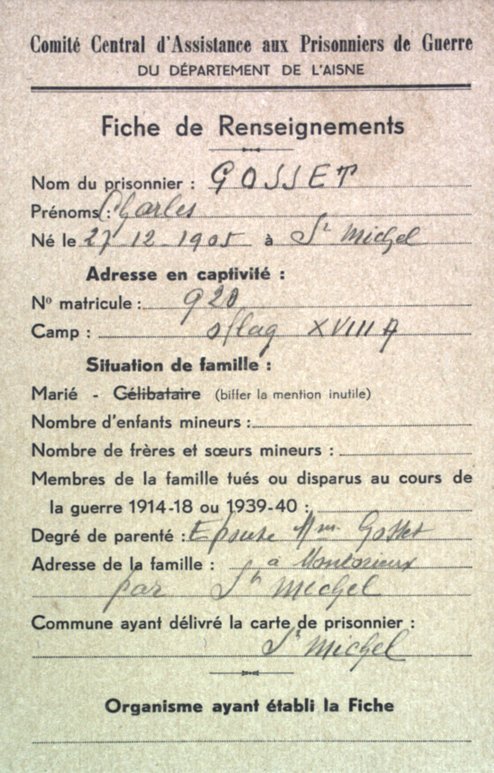 Comité Central d'Assistance aux Prisonniers de Guerre
DU DÉPARTEMENT DE L'AISNE
Fiche de Renseignements
Nom du prisonnier : GOSSET
Prénoms : Charles
Né le 27-12-1905 à St Michel
Adresse en captivité :
No matricule : 920
Camp : oflag XVIII A
Situation de famille :
Marié - Célibataire (biffer la mention inutile)
Nombre d'enfants mineurs :
Nombre de frères et sœurs mineurs :
Membres de la famille tués ou disparus au cours de
la guerre 1914-18 ou 1939-40 :
Degré de parenté : Epouse Mme Gosset
Adresse de la famille : à
par St Michel
Commune ayant délivré la carte de prisonnier :
St Michel
Organisme ayant établi la Fiche